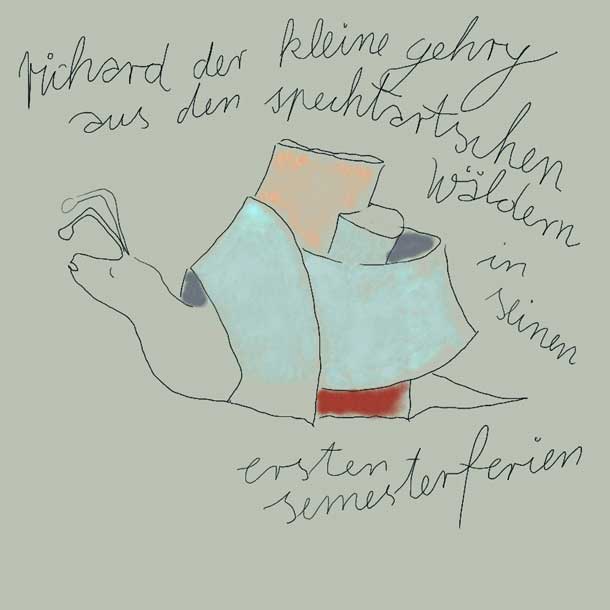 richard der kleine gehry
aus den spechtartschen
wäldern
in
seinen
ersten
semesterferien